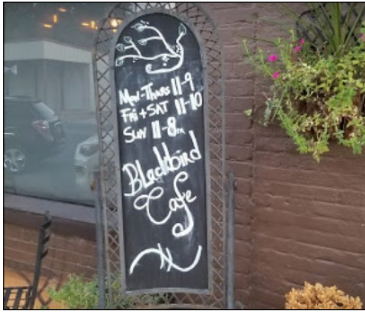 Mon-Thurs 11-9
Fri + Sat 11-10
Sun 11-8pm
Blackbird
Cafe